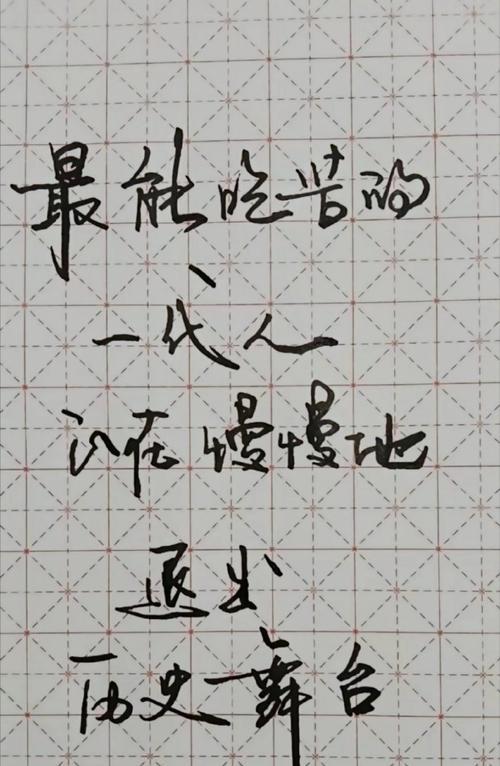 最能吃苦的
一代人
正在慢慢地
退出
历史舞台